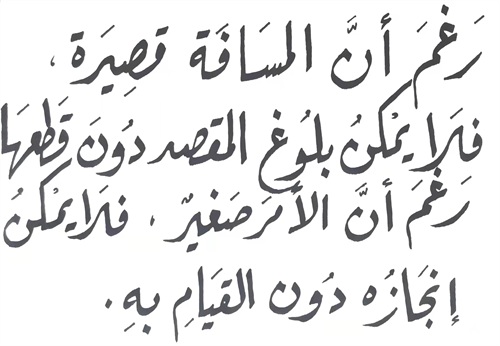 رَغمَ أنَّ المسَافَة قصِيرَة،
فلَا يمْكنُ بلُوغ المقصد دُونَ قَطعهَا
رَغمَ أنَّ الأمرَ صَغيرٌ، فلَا يمْكنُ
إنجَازُه دُون القيَامِ بِهِ.